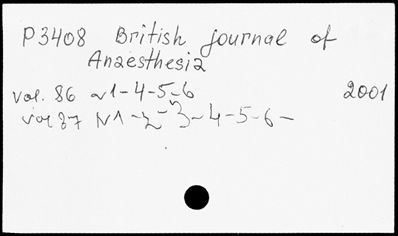 P3408 British journal of
Anaesthesia
vol. 86 N1-4-5-6 2001
vol 87 N1-2-3-4-5-6-